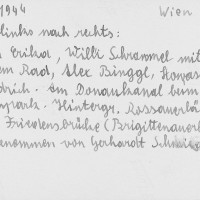 1944 Wien
links nach rechts:
Erika, Willi Schrammel mit
Rad, Alex Binggl,
am Donaukanal beim
park. Hintergr. Rossauerlä
Friedensbrücke (Brigittenauerl
nommen von Gerhardt